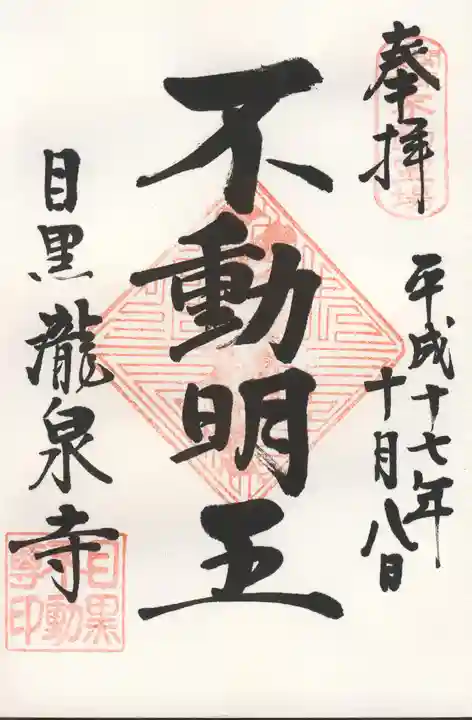 奉拝
平成十七年
十月八日
不動明王
目黒瀧泉寺
目黒
不動
寺印